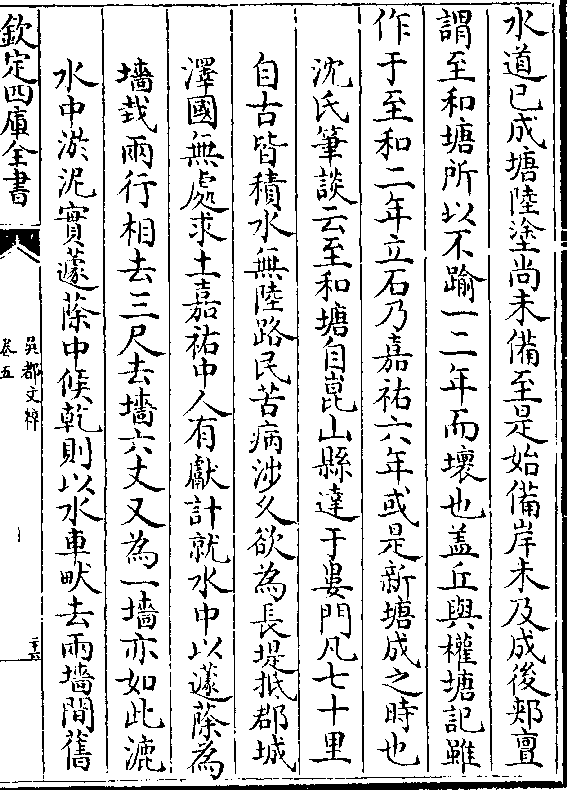 水道已成塘陸塗尚未備至是始備岸未及成後郟亶
謂至和塘所以不踰一二年而壞也盖丘與權塘記雖
作于至和二年立石乃嘉祐六年或是新塘成之時也
沈氏筆談云至和塘自崑山縣達于婁門凡七十里
自古皆積水無陸路民苦病涉久欲為長堤抵郡城
澤國無處求土嘉祐中人有獻計就水中以蘧蒢為
墻栽兩行相去三尺去墻六丈又為一墻亦如此漉
水中淤泥實蘧蒢中候乾則以水車畎去兩墻間舊
欽定四庫全書
吳都文粹
卷五
二十六